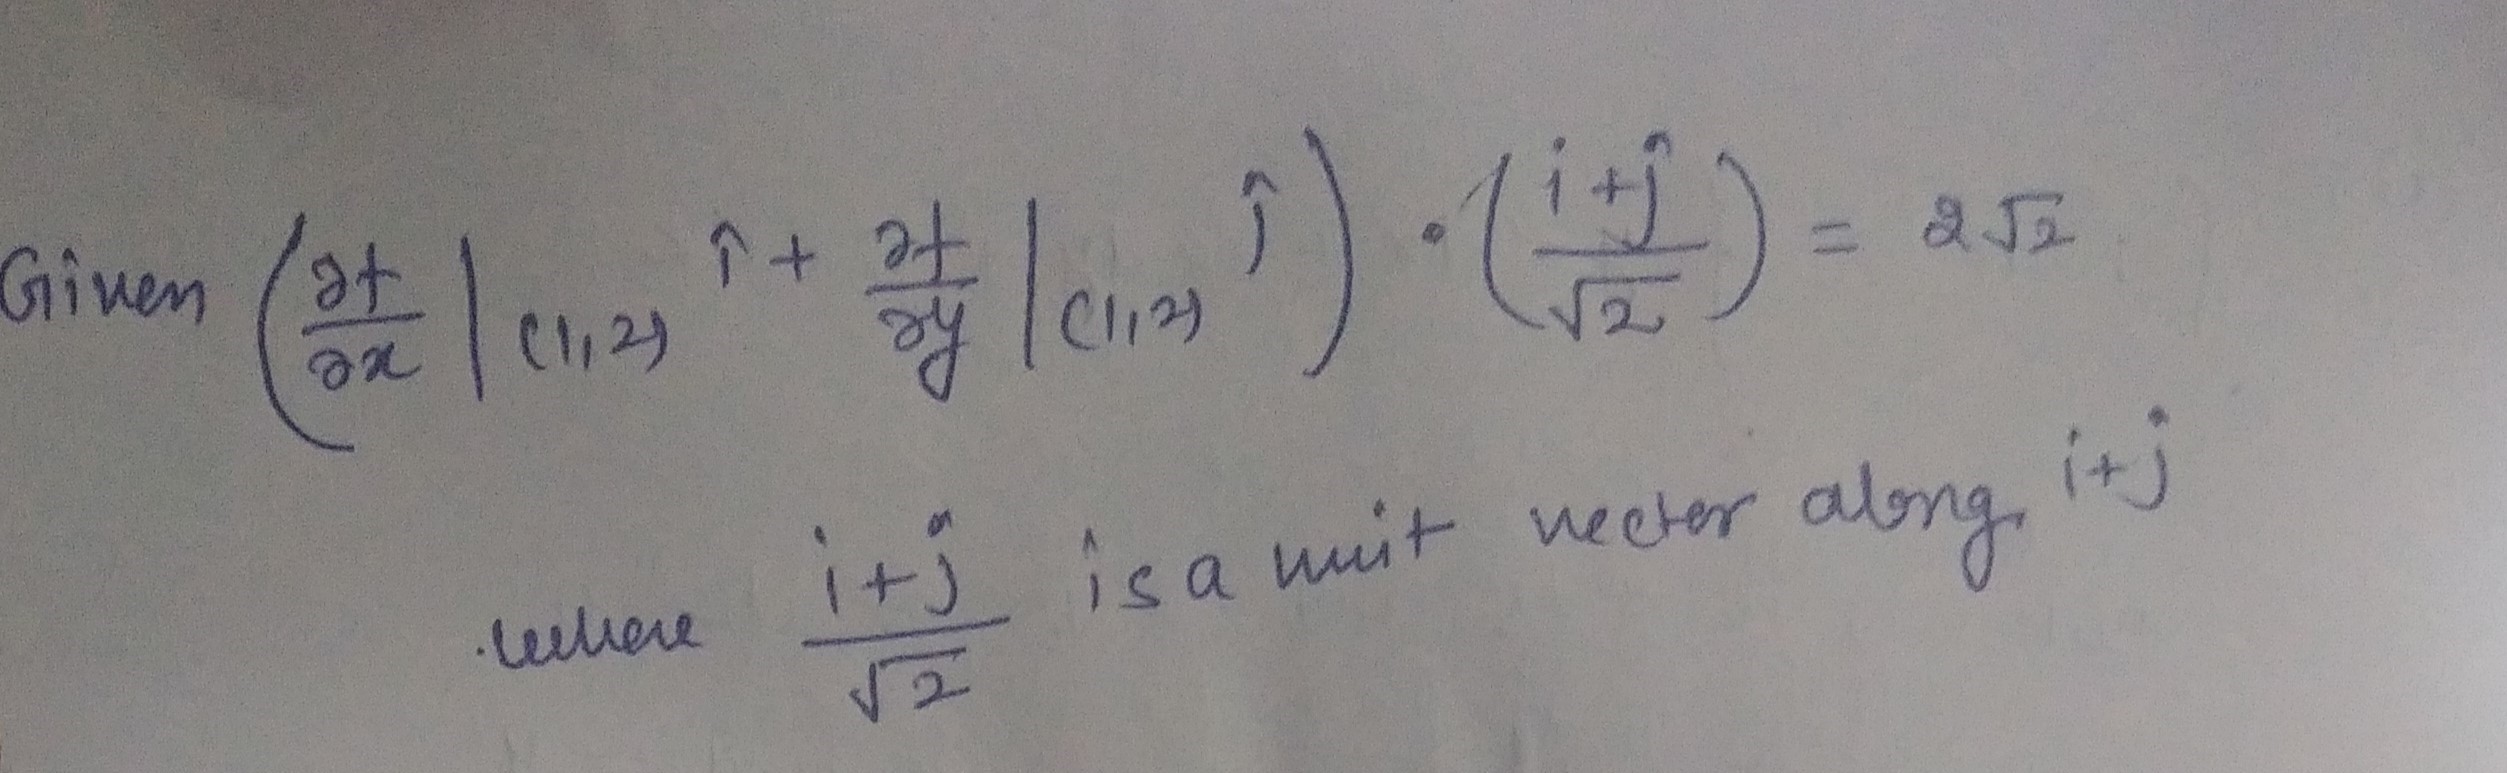 Given (∂f/∂x |(1,2) î + ∂f/∂y |(1,2) ĵ) · (i+j/√2) = 2√2
where i+j/√2 is a unit vector along i+j